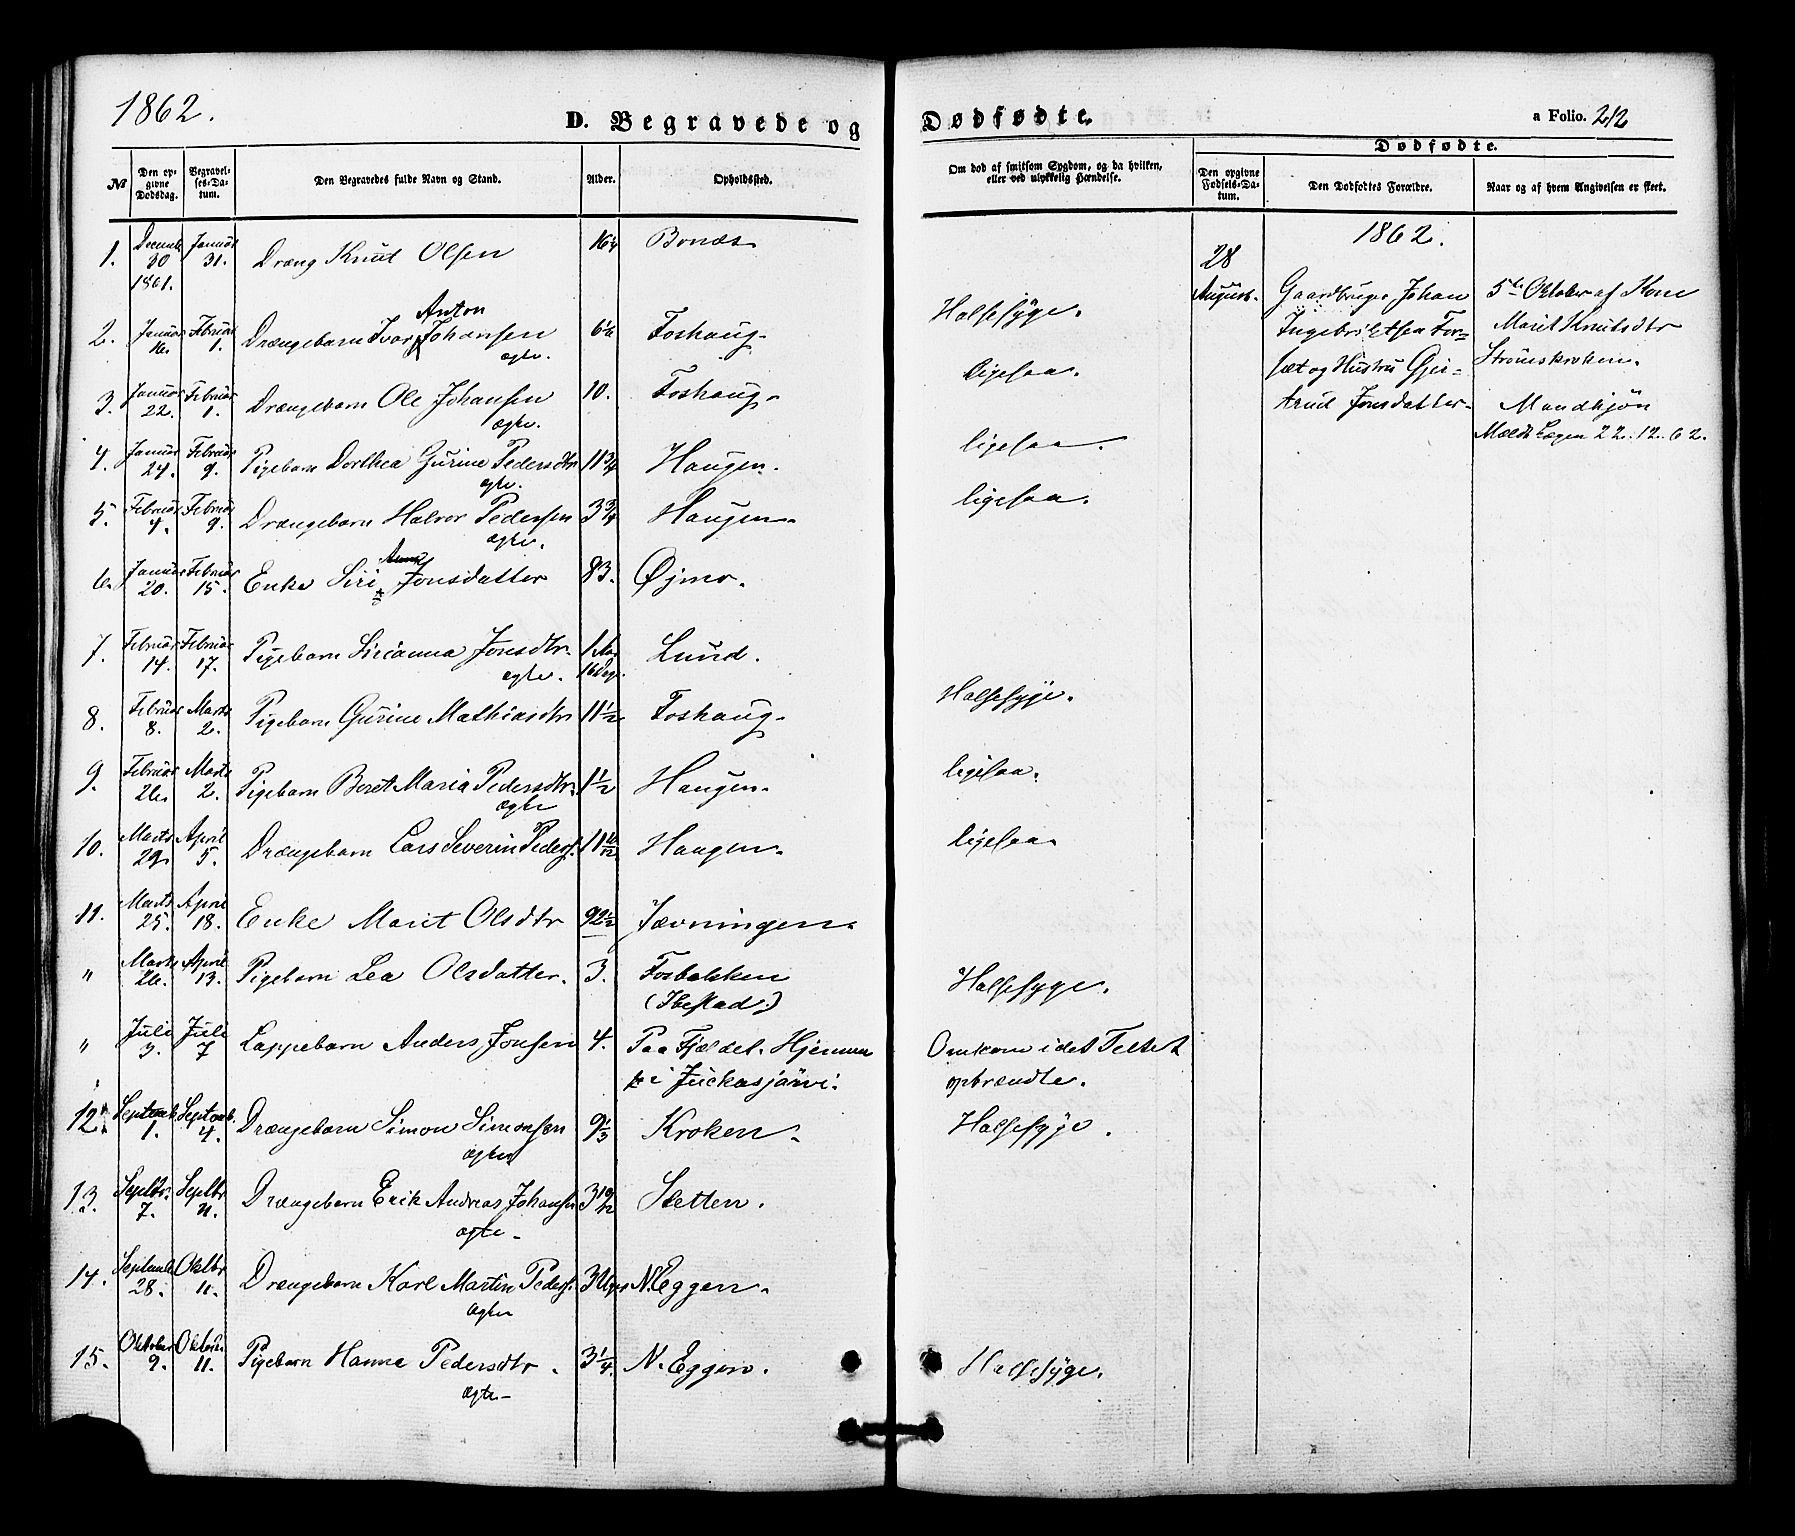 1862.
D. Begravede og Dødfødte.
a Folio. 212
№
Den opgivne Dødsdag.
Begravelses-Datum.
Den Begravedes fulde Navn og Stand.
Alder.
Opholdssted.
Om død af smitsom Sygdom, og da hvilken, eller ved ulykkelig Hændelse.
Dødfødte.
Den opgivne Fødsels-Datum.
Den Dødfødtes Forældre.
Naar og af hvem Angivelsen er skeet.
1. Decemb 30 1861. Januar 31. Dreng Knut Olsen 16 Bonæs
2. Januar 16. Februar 1. Drængebarn Ivar Anton Johansen ægte. 6 Foshaug. Halsesyge.
3. Januar 22. Februar 1. Drængebarn Ole Johansen ægte. 10. Foshaug. ligesaa.
4. Januar 24. Februar 9. Pigebarn Dorthea Gurine Pedersdtr ægte. 11 3/4 Haugen. ligesaa.
5. Februar 4. Februar 9. Drængebarn Halvor Pedersen ægte. 3 3/4 Haugen. ligesaa.
6. Januar 20. Februar 15. Enke Siri Jonsdatter 83. Øjmo.
7. Februar 14. Februar 17. Pigebarn Sirianna Jonsdtr. ægte. 1 Aar 16 Dage Lund.
8. Februar 8. Marts 2. Pigebarn Gurine Mathiasdtr 11 1/2 Foshaug. Halsesyge.
9. Februar 26. Marts 2. Pigebarn Beret Maria Pedersdtr. ægte 1 1/2 Haugen. ligesaa.
10. Marts 29. April 5. Drængebarn Lars Severin Peders. 11 10/12 Haugen. ligesaa.
11. Marts 25. April 18. Enke Marit Olsdtr 92 1/2 Jævningen.
" Marts 26. April 13. Pigebarn Lea Olsdatter. 3. Fosbakken (Ibestad.) Halsesyge.
" Juli 3. Juli 7 Lappebarn Anders Jonsen 4. Paa Fjældet. Hjemme i Juckasjärvi. Omkom i det Teltet opbrændte.
12. Septemb. 1. Septemb. 4. Drængebarn Simon Simonsen ægte 9 1/3 Kroken. Halsesyge.
13. Septbr. 7. Septbr 11. Drængebarn Erik Andreas Johansen ægte. 3 10/12 Sletten.
14. Septemb 28. Oktbr 11. Drængebarn Karl Martin Peders. ægte 3 Uger N. Eggen.
15. Oktober 9. Oktober 11. Pigebarn Hanna Pedersdtr. ægte 3 1/4. N. Eggen. Halsesyge.
1862.
28 August. Gaardbruger Johan Ingebrigtsen Forsæt og Hustru Gjertrud Jonsdatter.
5te Oktober af Kone Marit Knutsdtr Strømskroken.
Mandkjøn
Meldt Lægen 22. 12. 62.